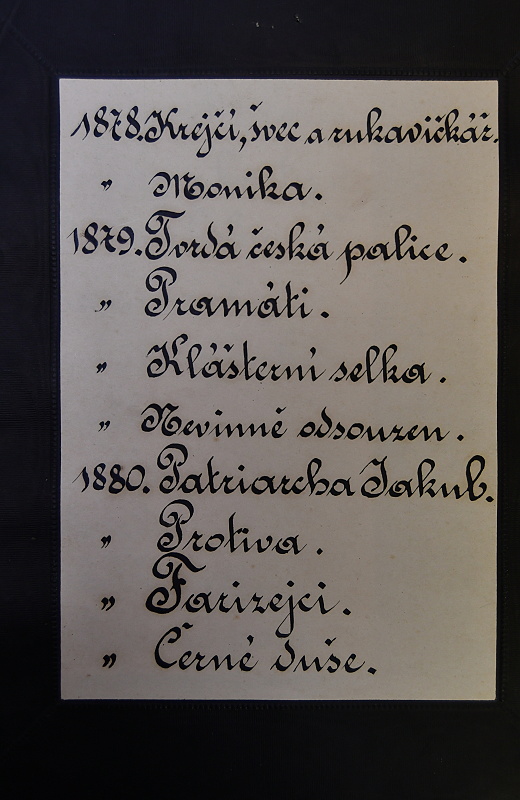 1878. Krejčí, švec a rukavičkář.
„ Monika.
1879. Tvrdá česká palice.
„ Pramáti.
„ Klášterní selka.
„ Nevinně odsouzen.
1880. Patriarcha Jakub.
„ Protiva.
„ Farizejci.
„ Černé duše.